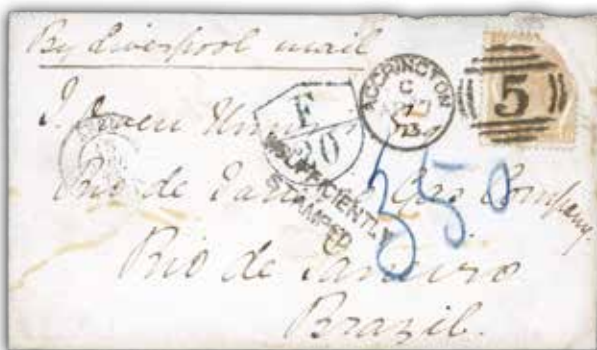 By Liverpool mail
ACCRINGTON
C
AP
73
5
F
20
INSUFFICIENTLY
STAMPED
350
Rio de Janeiro Gas Company.
Rio de Janeiro
Brazil.